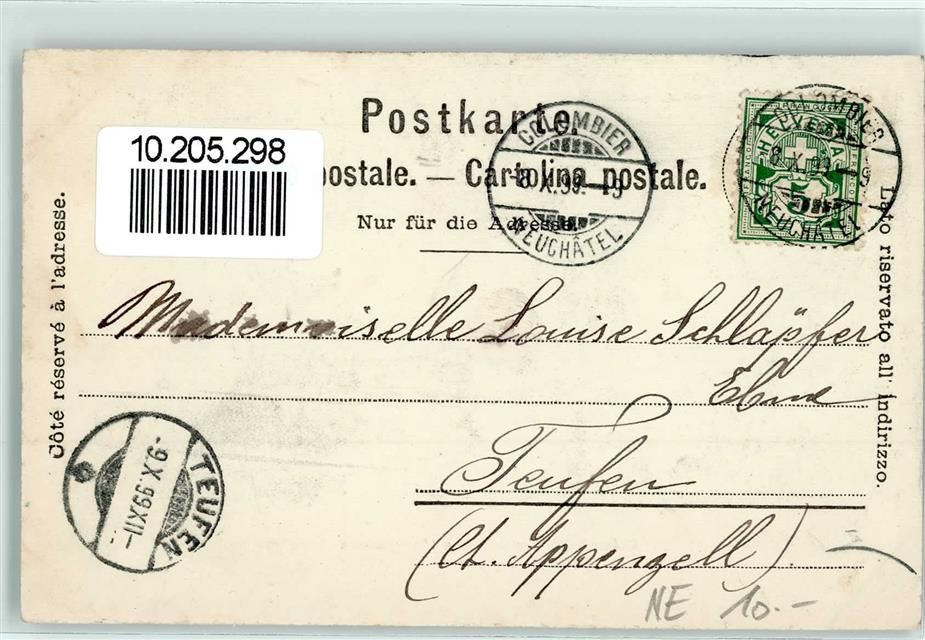 Postkarte.
10.205.298
postale. — Cartolina postale.
Nur für die Adresse.
COLOMBIER
8.X.99.–9
NEUCHÂTEL
COLOMBIER
8.X.99.–9
NEUCHÂTEL
FRANCO
HELVETIA
5
Côté réservé à l'adresse.
Lato riservato all' indirizzo.
Mademoiselle Louise Schläpfer
Ebne
Teufen
(Ct. Appenzell).
TEUFEN
-9.X.99XII–
NE 10.-